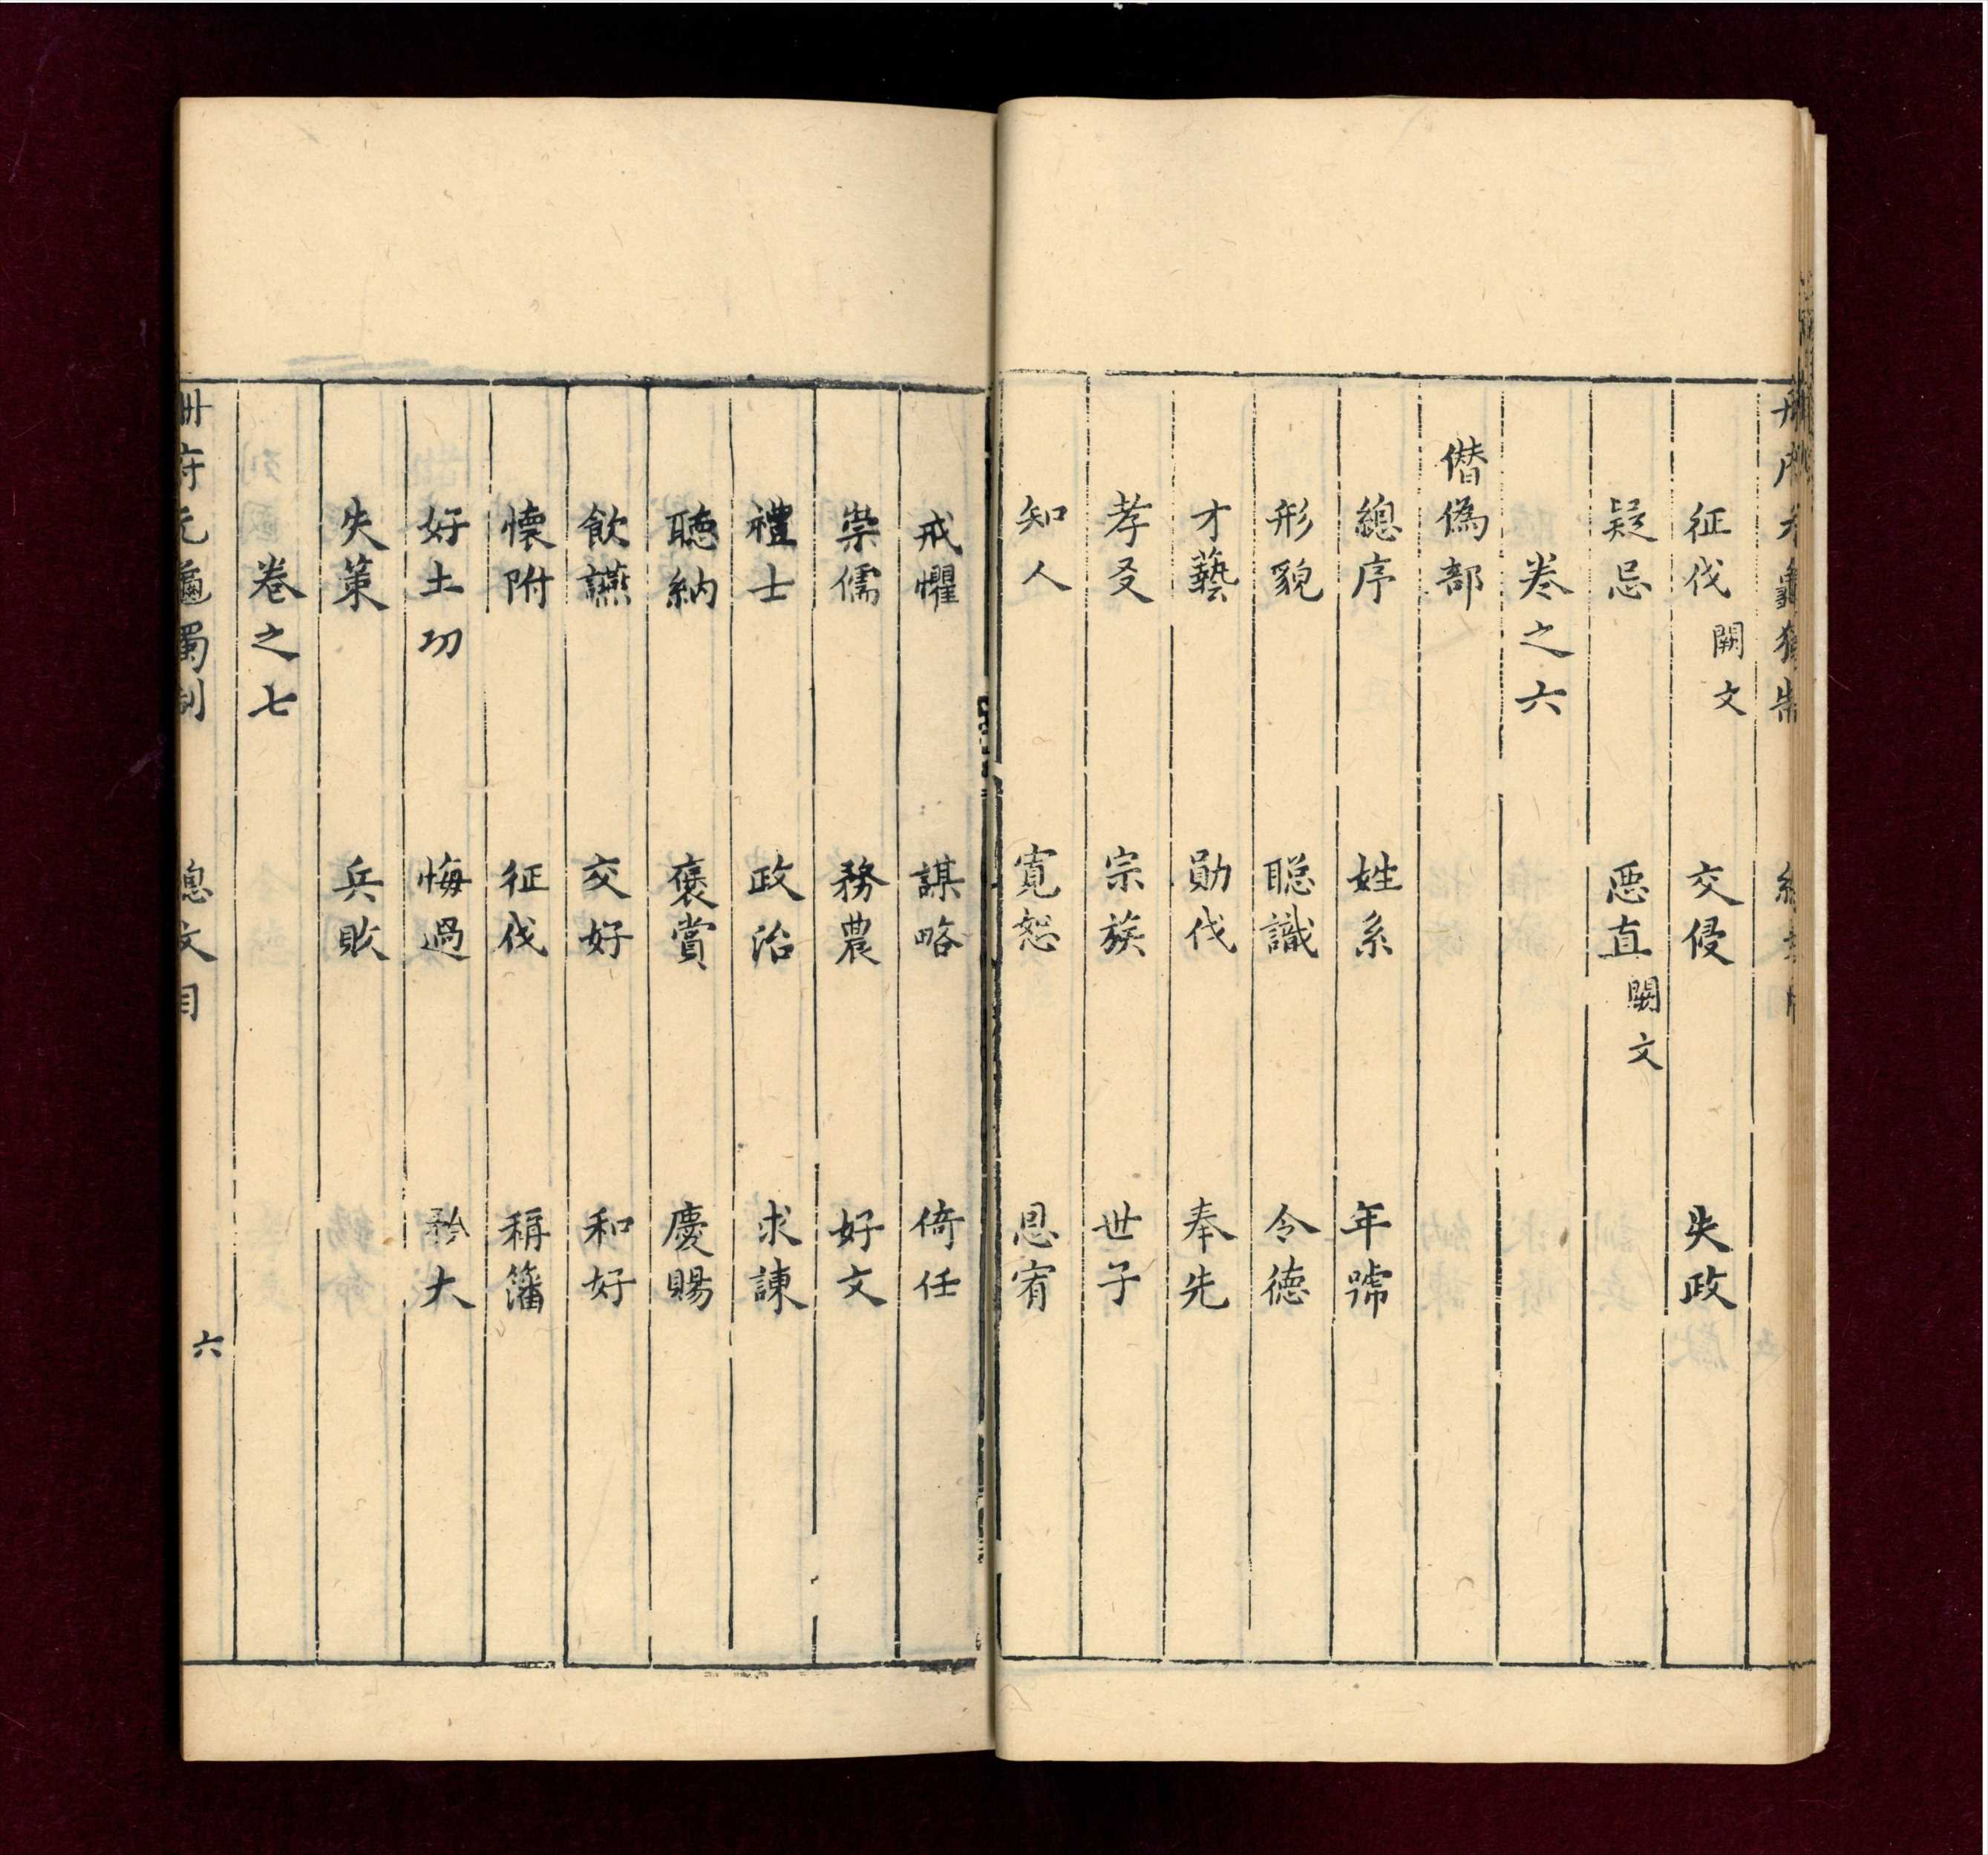 征伐闕文 交侵 失政
疑忌 惡直闕文
卷之六
僭偽部
總序 姓系 年號
形貌 聰識 令德
才藝 勛伐 奉先
孝友 宗族 世子
知人 寬恕 恩宥
戒懼 謀略 倚任
崇儒 務農 好文
禮士 政治 求諫
聽納 褒賞 慶賜
飲讌 交好 和好
懷附 征伐 稱籓
好土功 悔過 矜大
失策 兵敗
卷之七
冊府元龜獨制 總文目 六